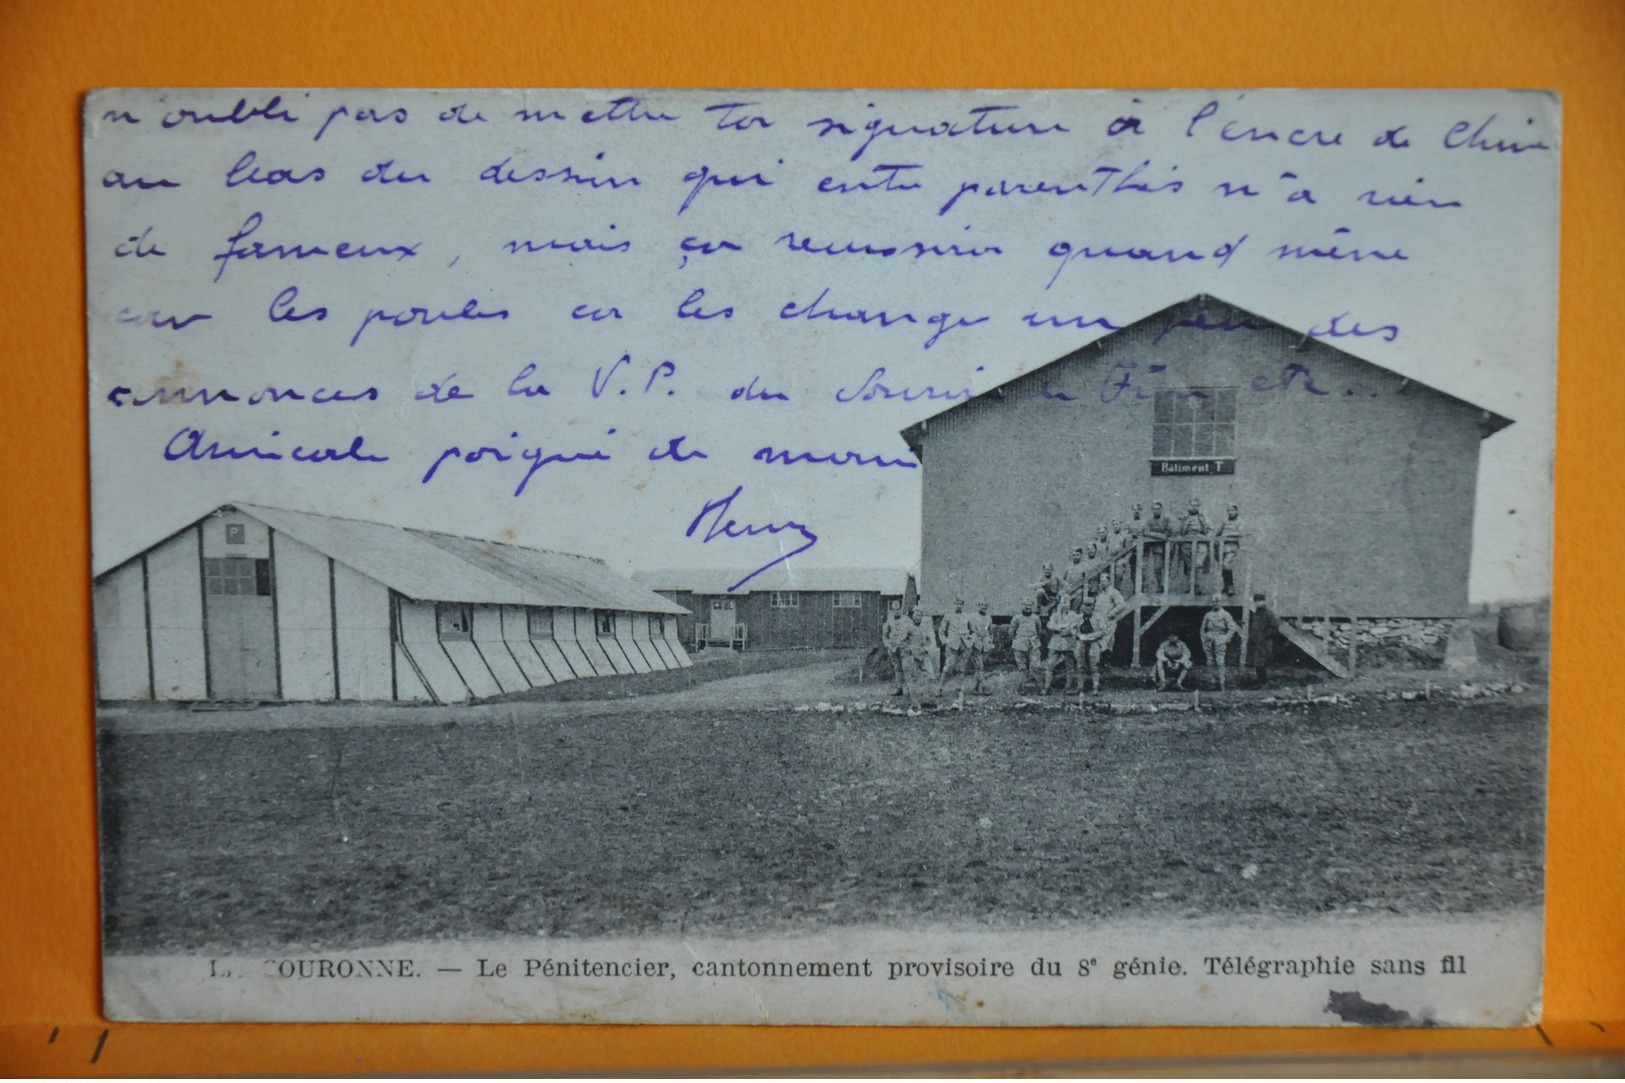 n'oubli pas de mettre ta signature à l'encre de Chine
au bas du dessin qui entre parenthès n'a rien
de fameux, mais ça reussira quand même
car les poules ça les change un peu des
annonces de la V.P. du Souris etc..
Amicale poigné de main
Henry
P
Bâtiment T
COURONNE. — Le Pénitencier, cantonnement provisoire du 8e génie. Télégraphie sans fil